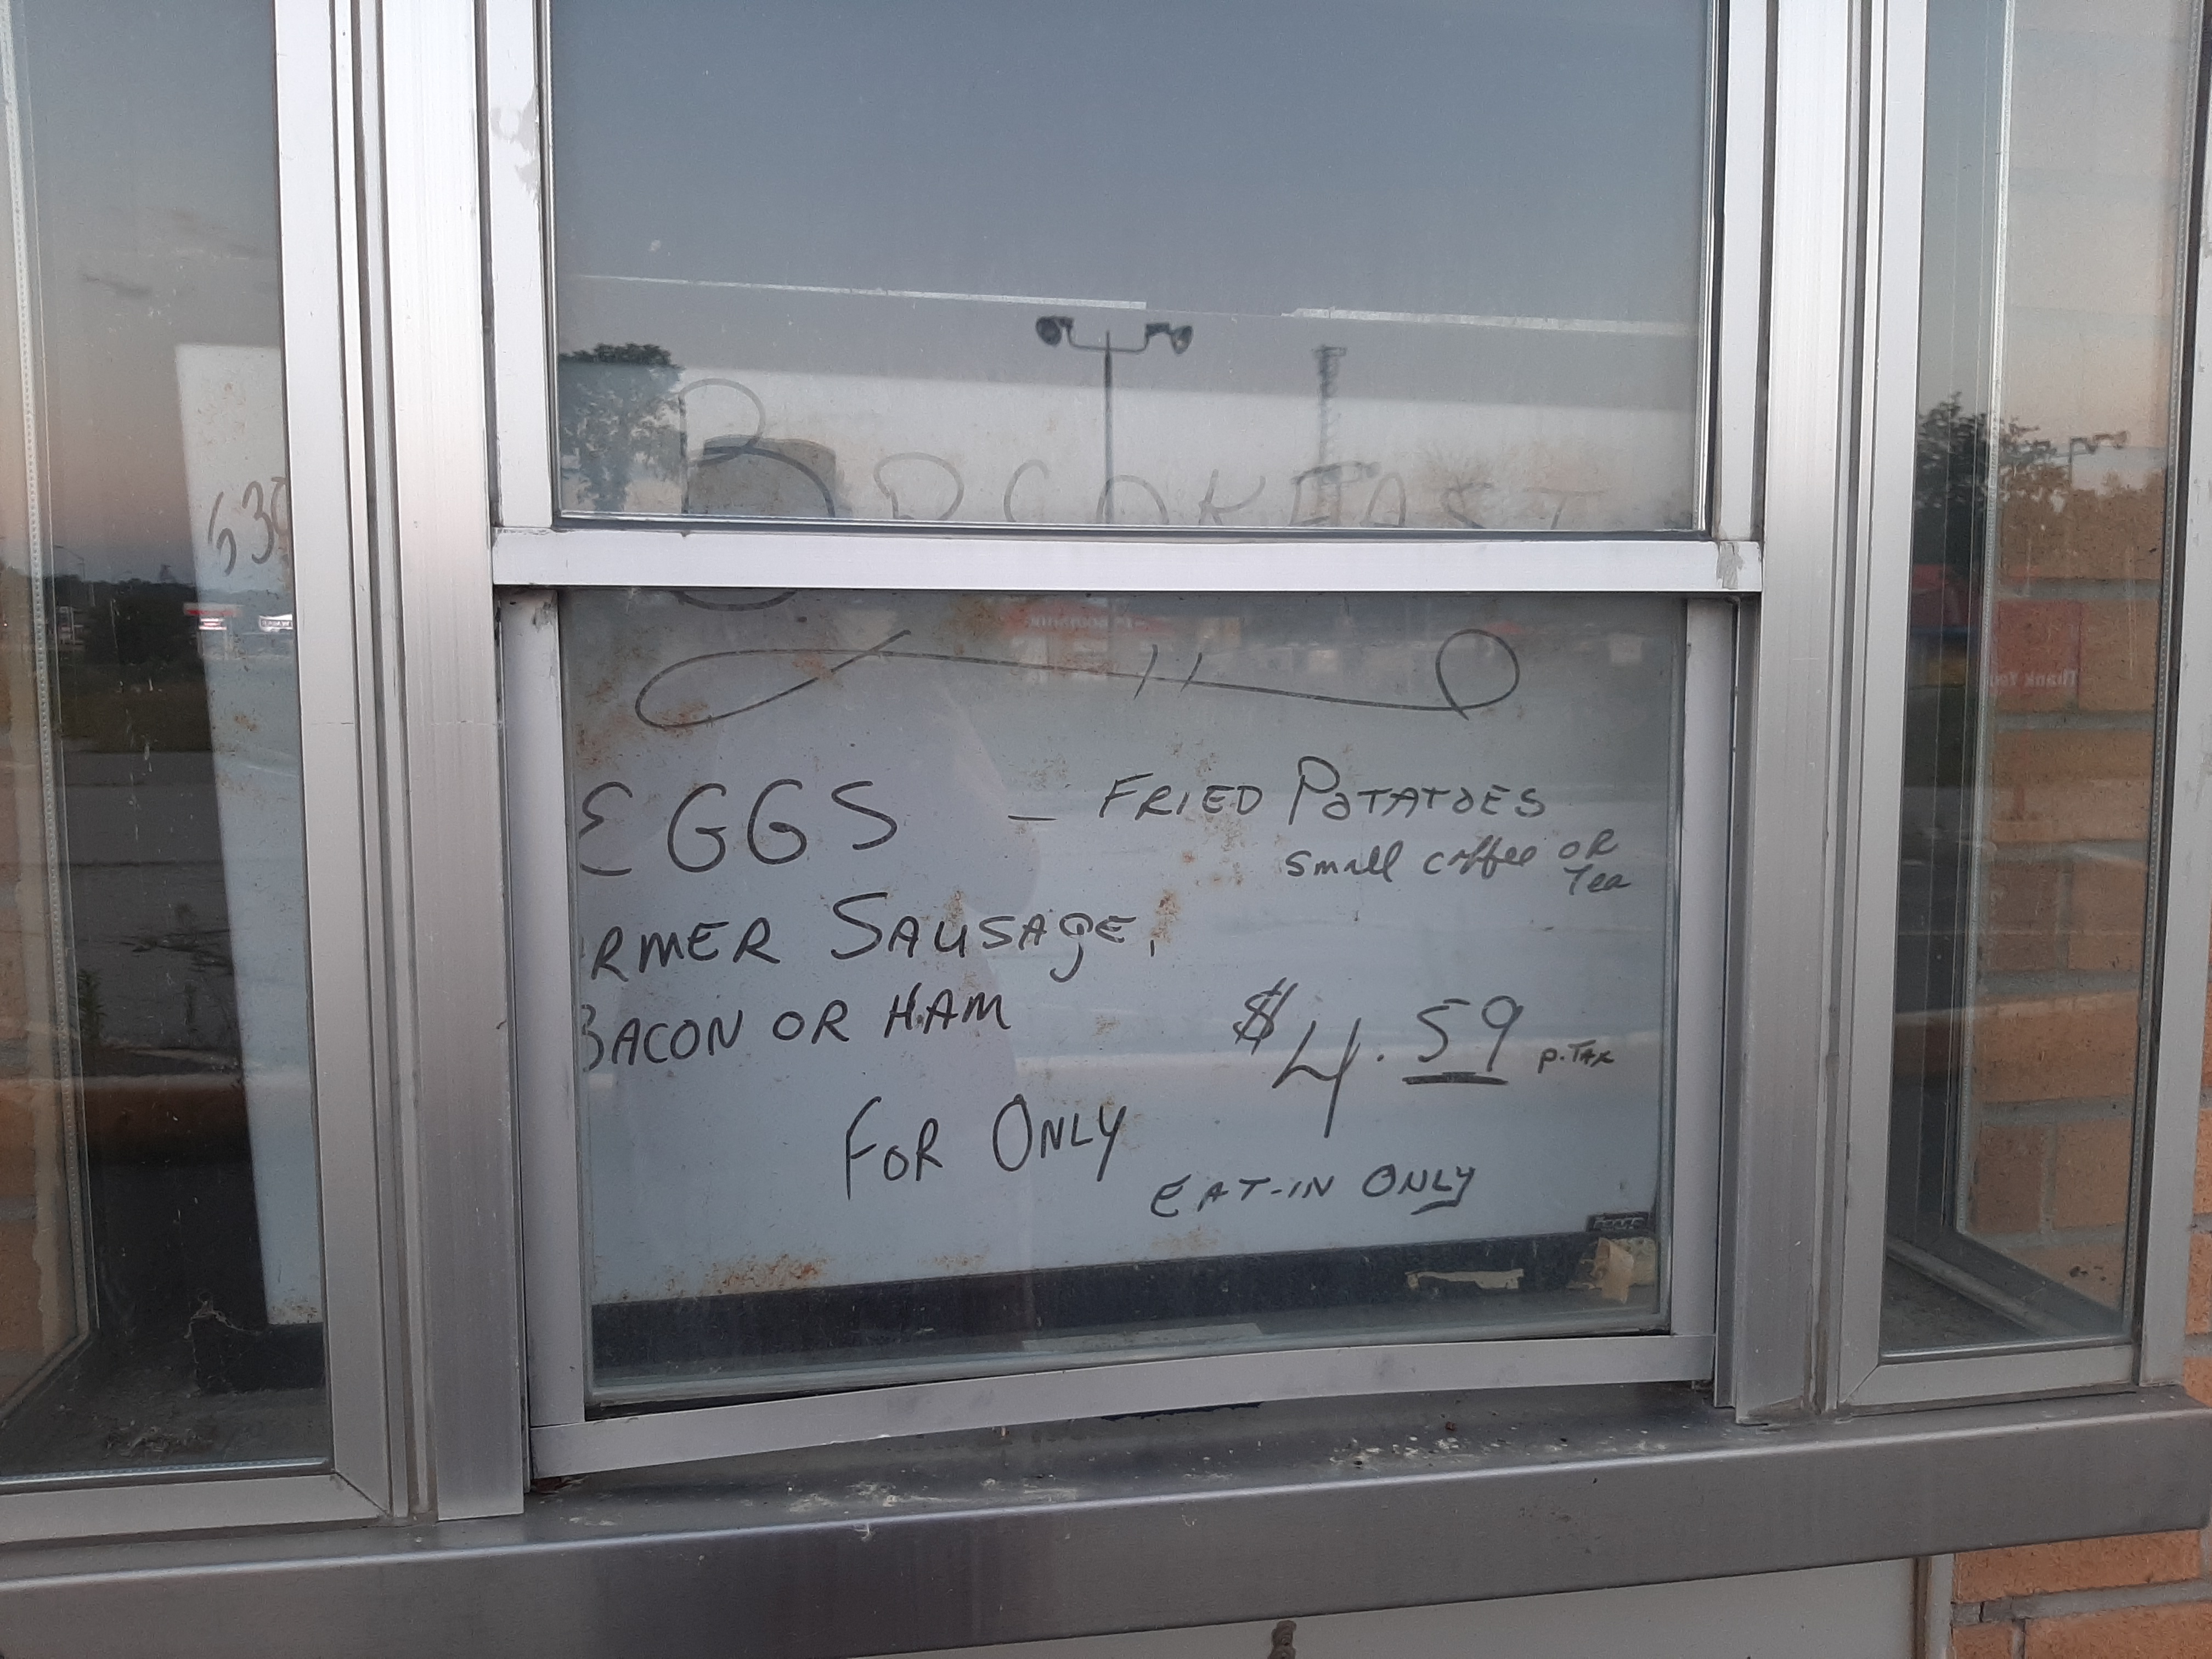 530
BREAKFAST
EGGS - FRIED POTATOES
small coffee OR
Tea
RMER SAUSAGE,
BACON OR HAM
$4.59 P.TAX
FOR ONLY
EAT-IN ONLY
Thank You